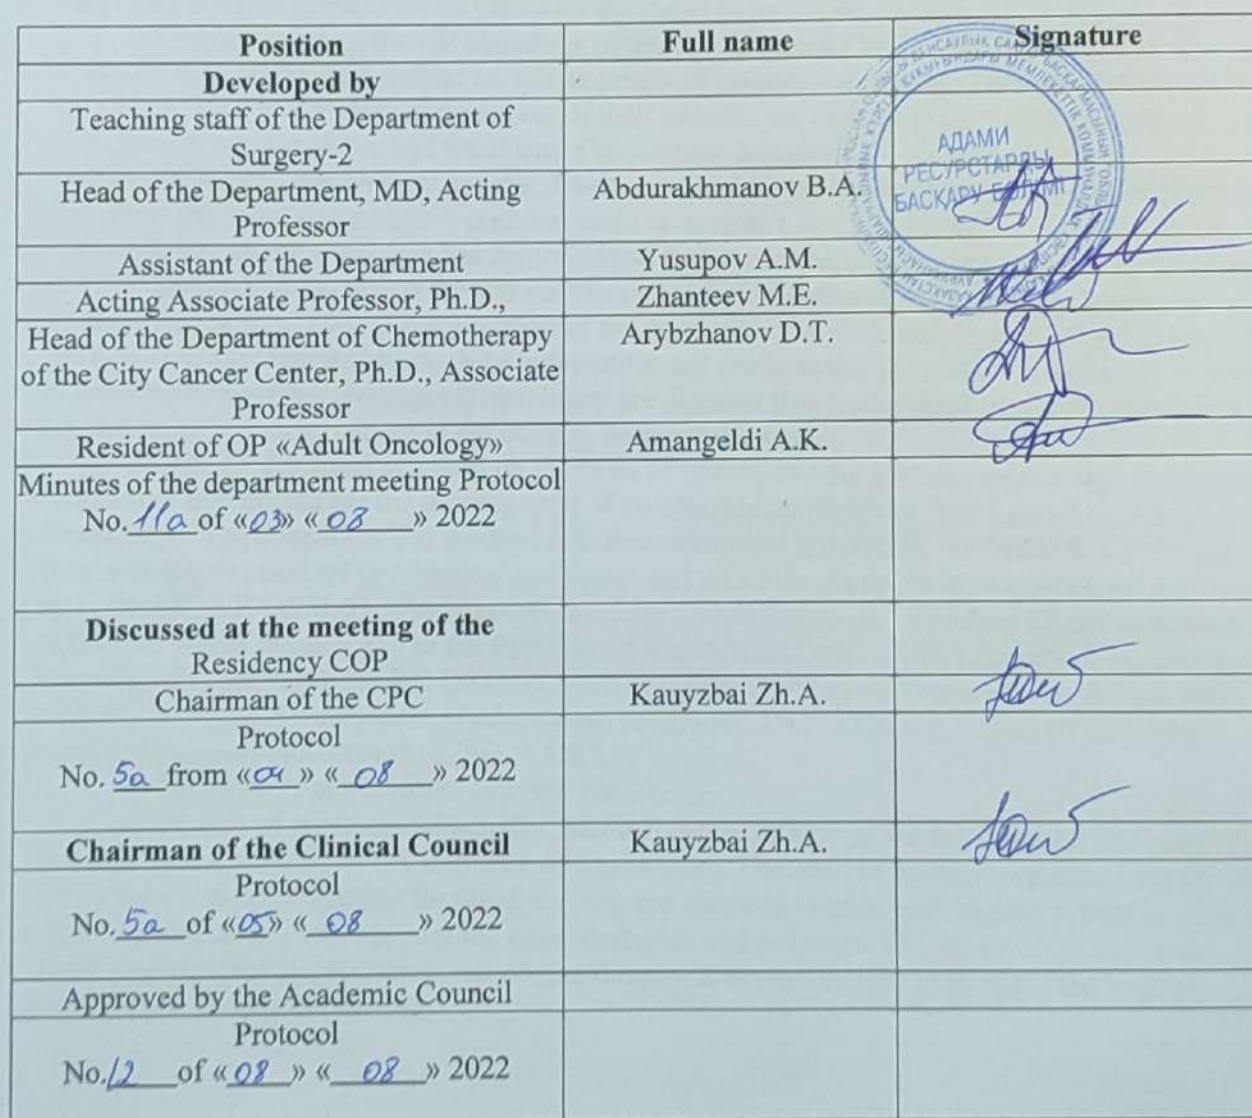 Position Full name Signature
Developed by
Teaching staff of the Department of
Surgery-2
АДАМИ
РЕСУРСТАРДЫ
БАСҚАРУ БӨЛІМІ
Head of the Department, MD, Acting Abdurakhmanov B.A.
Professor
Assistant of the Department Yusupov A.M.
Acting Associate Professor, Ph.D., Zhanteev M.E.
Head of the Department of Chemotherapy Arybzhanov D.T.
of the City Cancer Center, Ph.D., Associate
Professor
Resident of OP «Adult Oncology» Amangeldi A.K.
Minutes of the department meeting Protocol
No. 11a of «03» «08» 2022
Discussed at the meeting of the
Residency COP
Chairman of the CPC Kauyzbai Zh.A.
Protocol
No. 5a from «04» «08» 2022
Chairman of the Clinical Council Kauyzbai Zh.A.
Protocol
No. 5a of «05» «08» 2022
Approved by the Academic Council
Protocol
No. 12 of «08» «08» 2022